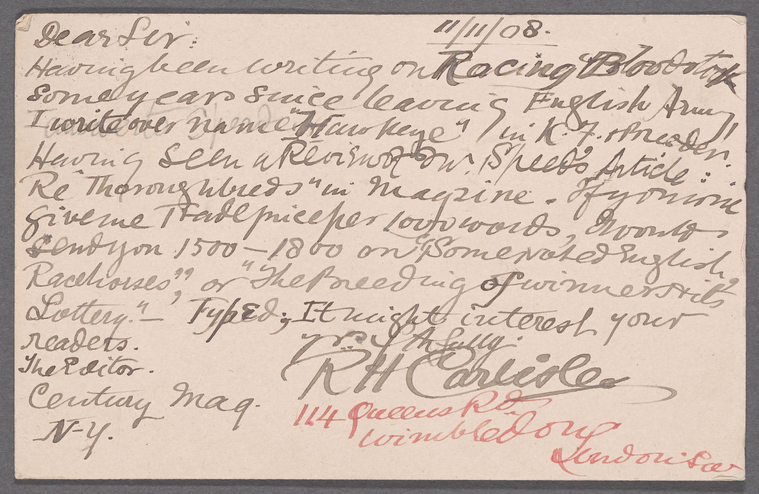 Dear Sir: 11/11/08.
Having been writing on Racing "Bloodstock
some years since leaving English Army
I write over name "Hawkeye" in K. F. & Breeder.
Having seen a Review of Mr. Speeds Article:
Re "Thoroughbreds" in Magzine. If you
give me Trade price per 1000 words, I would
send you 1500 – 1800 on "Some noted English
Racehorses", or "The Breeding of winners & its
Lottery." – Typed; It might interest your
readers.
yrs
R H Carlisle
The Editor.
Century Mag.
N-Y.
114 Queens Rd.
Wimbledon
London. S.W